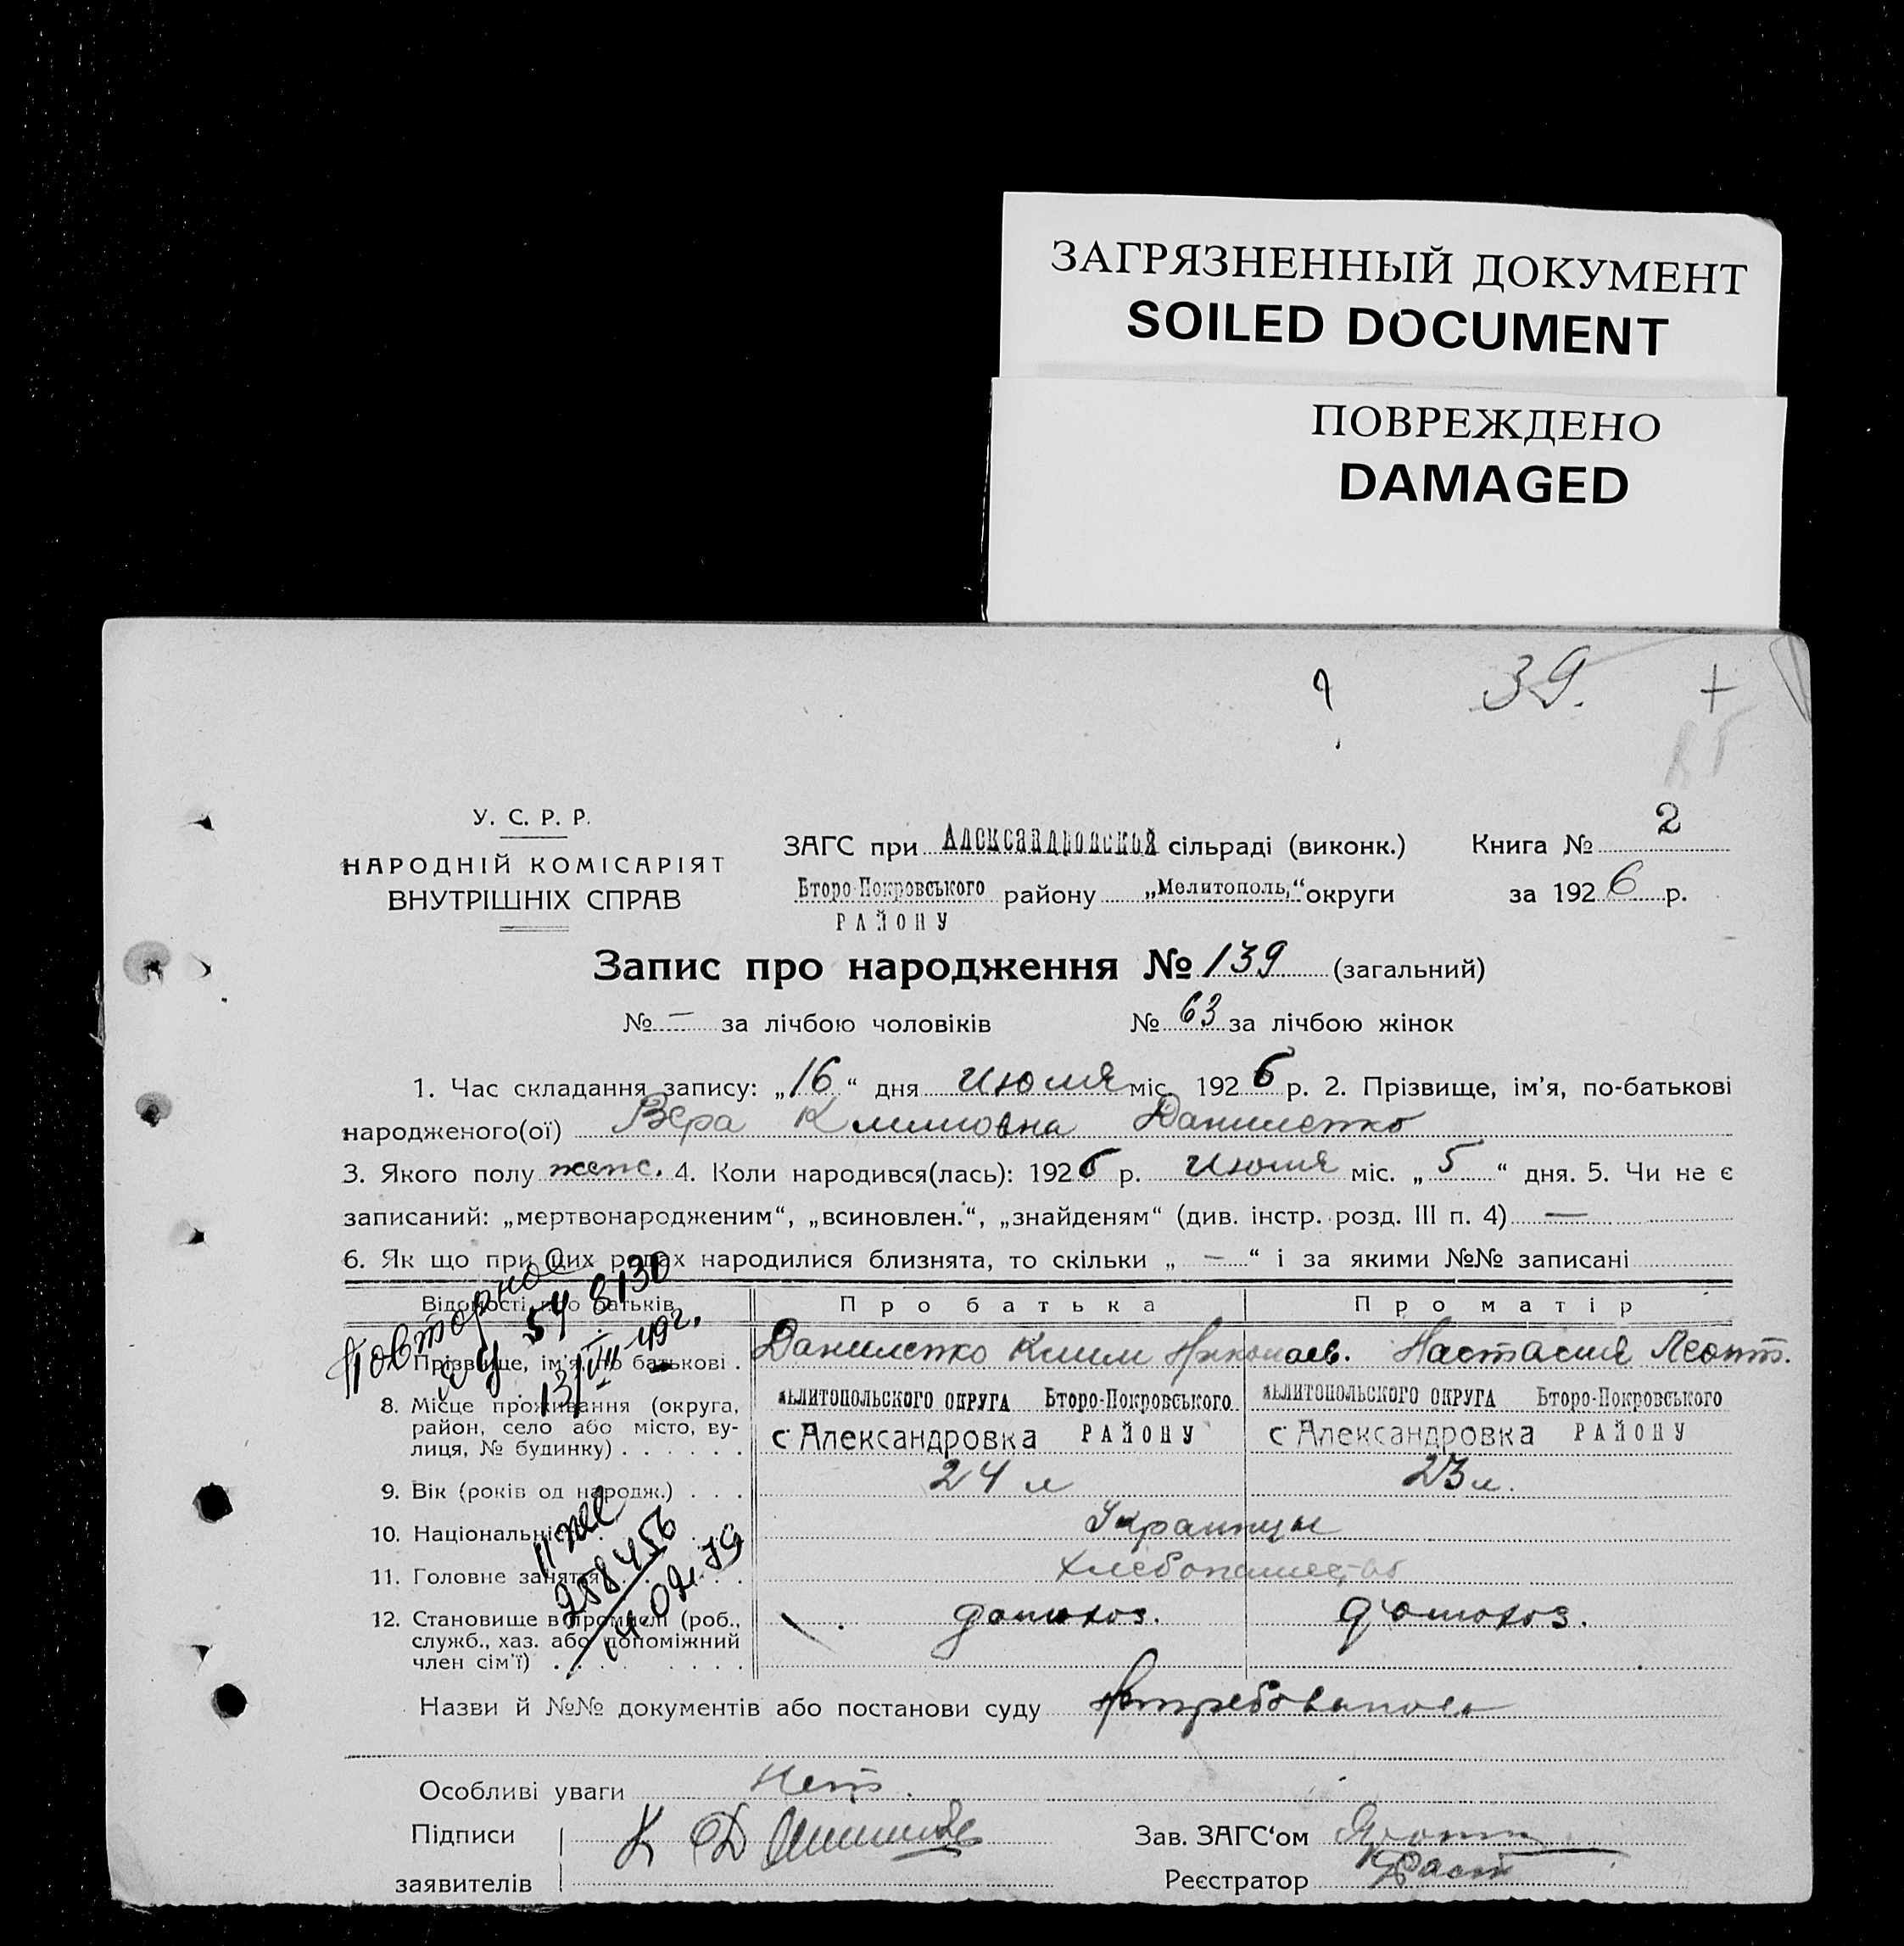 ЗАГРЯЗНЕННЫЙ ДОКУМЕНТ
SOILED DOCUMENT
ПОВРЕЖДЕНО
DAMAGED
39. +
У. С. Р. Р.
НАРОДНІЙ КОМІСАРІЯТ
ВНУТРІШНІХ СПРАВ
ЗАГС при Александровской сільраді (виконк.) Книга № 2
Второ-Покровського району „Мелитополь,“ округи за 1926 р.
РАЙОНУ
Запис про народження № 139 (загальний)
№ — за лічбою чоловіків № 63 за лічбою жінок
1. Час складання запису: „16“ дня Июля міс. 1926 р. 2. Прізвище, ім'я, по-батькові
народженого(ої) Вера Климовна Даниленко
3. Якого полу женс. 4. Коли народився(лась): 1926 р. Июля міс. „5“ дня. 5. Чи не є
записаний: „мертвонародженим“, „всиновлен.“, „знайденям“ (див. інстр. розд. III п. 4) —
6. Як що при цих родах народилися близнята, то скільки „—“ і за якими №№ записані
Відомості про батьків Про батька Про матір
Повторное
54 8130
13/VIII-49г.
Прізвище, ім'я, по батькові . Даниленко Клим Николаев. Настасия Леонт.
8. Місце проживання (округа, район, село або місто, вулиця, № будинку) . . . . . .
МЕЛИТОПОЛЬСКОГО ОКРУГА Второ-Покровського МЕЛИТОПОЛЬСКОГО ОКРУГА Второ-Покровського
с Александровка РАЙОНУ с Александровка РАЙОНУ
9. Вік (років од народж.) . . . 24 л 23 л.
10. Національність Украинцы
11. Головне заняття Хлебопашество
258456
14 02. 79
12. Становище в промислі (роб., служб., хаз. або допоміжний член сім'ї) домохоз. домохоз.
Назви й №№ документів або постанови суду Нетребовалось
Особливі уваги Нет.
Підписи К Даниленко Зав. ЗАГС‘ом
заявителів Реєстратор